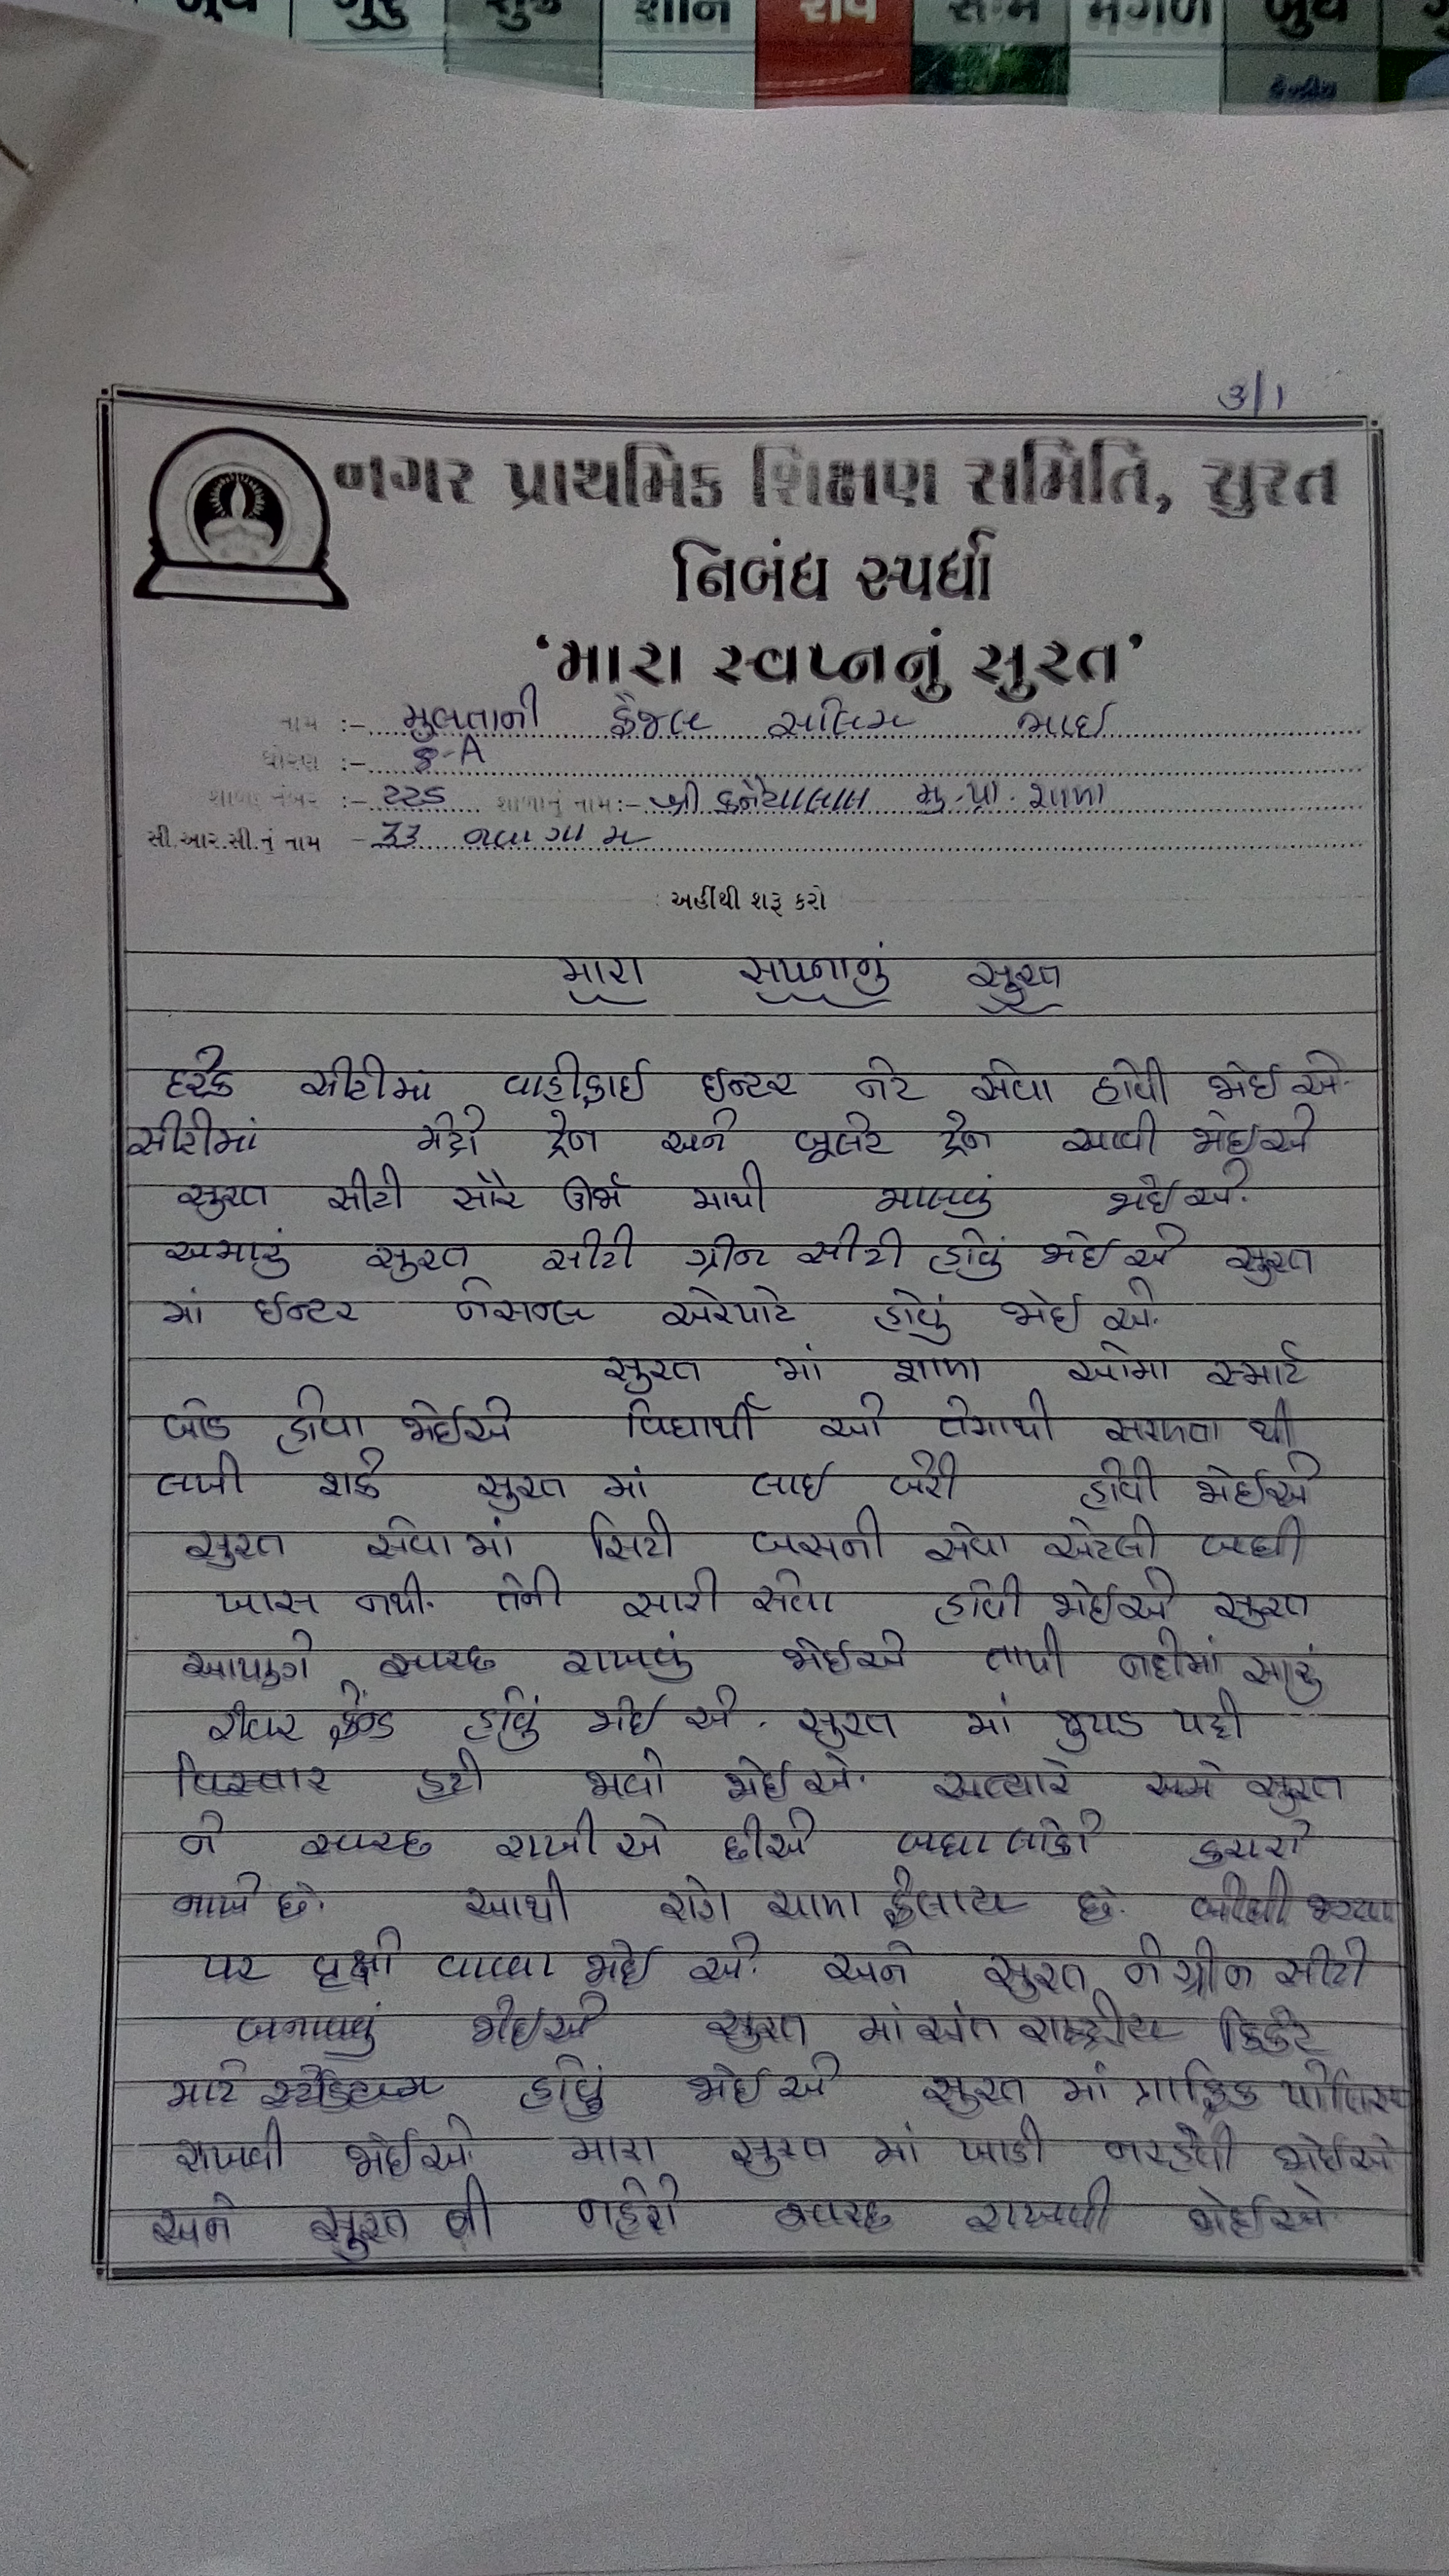 ગુરુ શુક્ર શનિ રવિ સોમ મંગળ બુધ
૩/૧
નગર પ્રાથમિક શિક્ષણ સમિતિ, સુરત
નિબંધ સ્પર્ધા
'મારા સ્વપ્નનું સુરત'
નામ :- મુલતાની ફૈજલ સલિમ ભાઈ
ધોરણ :- ૪-A
શાળા નંબર :- ૨૨૬ શાળાનું નામ:- શ્રી કનૈયાલાલ મુ.પ્રા. શાળા
સી.આર.સી.નું નામ - ૩૩ નવાગામ
અહીંથી શરૂ કરો
મારા સપનાનું સુરત
દરેક સીટીમાં વાઈફાઈ ઈન્ટર નેટ સેવા હોવી જોઈએ.
સીટીમાં મેટ્રો ટ્રેન અને બૂલેટ ટ્રેન આવી જોઈએ
સુરત સીટી સૌર ઊર્જા માથી ચાલવું જોઈએ.
અમારું સુરત સીટી ગ્રીન સીટી હોવું જોઈએ સુરત
માં ઈન્ટર નેસનલ એરપોટ હોવું જોઈએ.
સુરત માં શાળા ઓમા સ્માર્ટ
બોડ હોવા જોઈએ વિધાર્થી ઓ તેમાથી સરળતા થી
લખી શકે સુરત માં લાઈ બેરી હોવી જોઈએ
સુરત સેવામાં સિટી બસની સેવા એટલી બધી
ખાસ નથી. તેની સારી સેવા હોવી જોઈએ સુરત
આપણે સ્વચ્છ રાખવું જોઈએ તાપી નદીમાં સારું
રીવર ફ્રેન્ડ હોવું જોઈએ. સુરત માં ઝુપડ પટ્ટી
વિસ્તાર હટી જવો જોઈએ. અત્યારે અમે સુરત
ને સ્વચ્છ રાખીએ છીએ બધા લોકો કચરો
નાખે છે. આથી રોગ ચાળા ફેલાય છે.
પર વૃક્ષો વાવવા જોઈએ. અને સુરત ને ગ્રીન સીટી
બનાવવું જોઈએ સુરત માં અંત રાષ્ટ્રીય ક્રિકેટ
માટે સ્ટેડિયમ હોવું જોઈએ સુરત માં ત્રાફિક પોલિસ
રાખવી જોઈએ મારા સુરત માં ખાડી ન હોવી જોઈએ
અને સુરત ની નહેરો સ્વચ્છ રાખવી જોઈએ